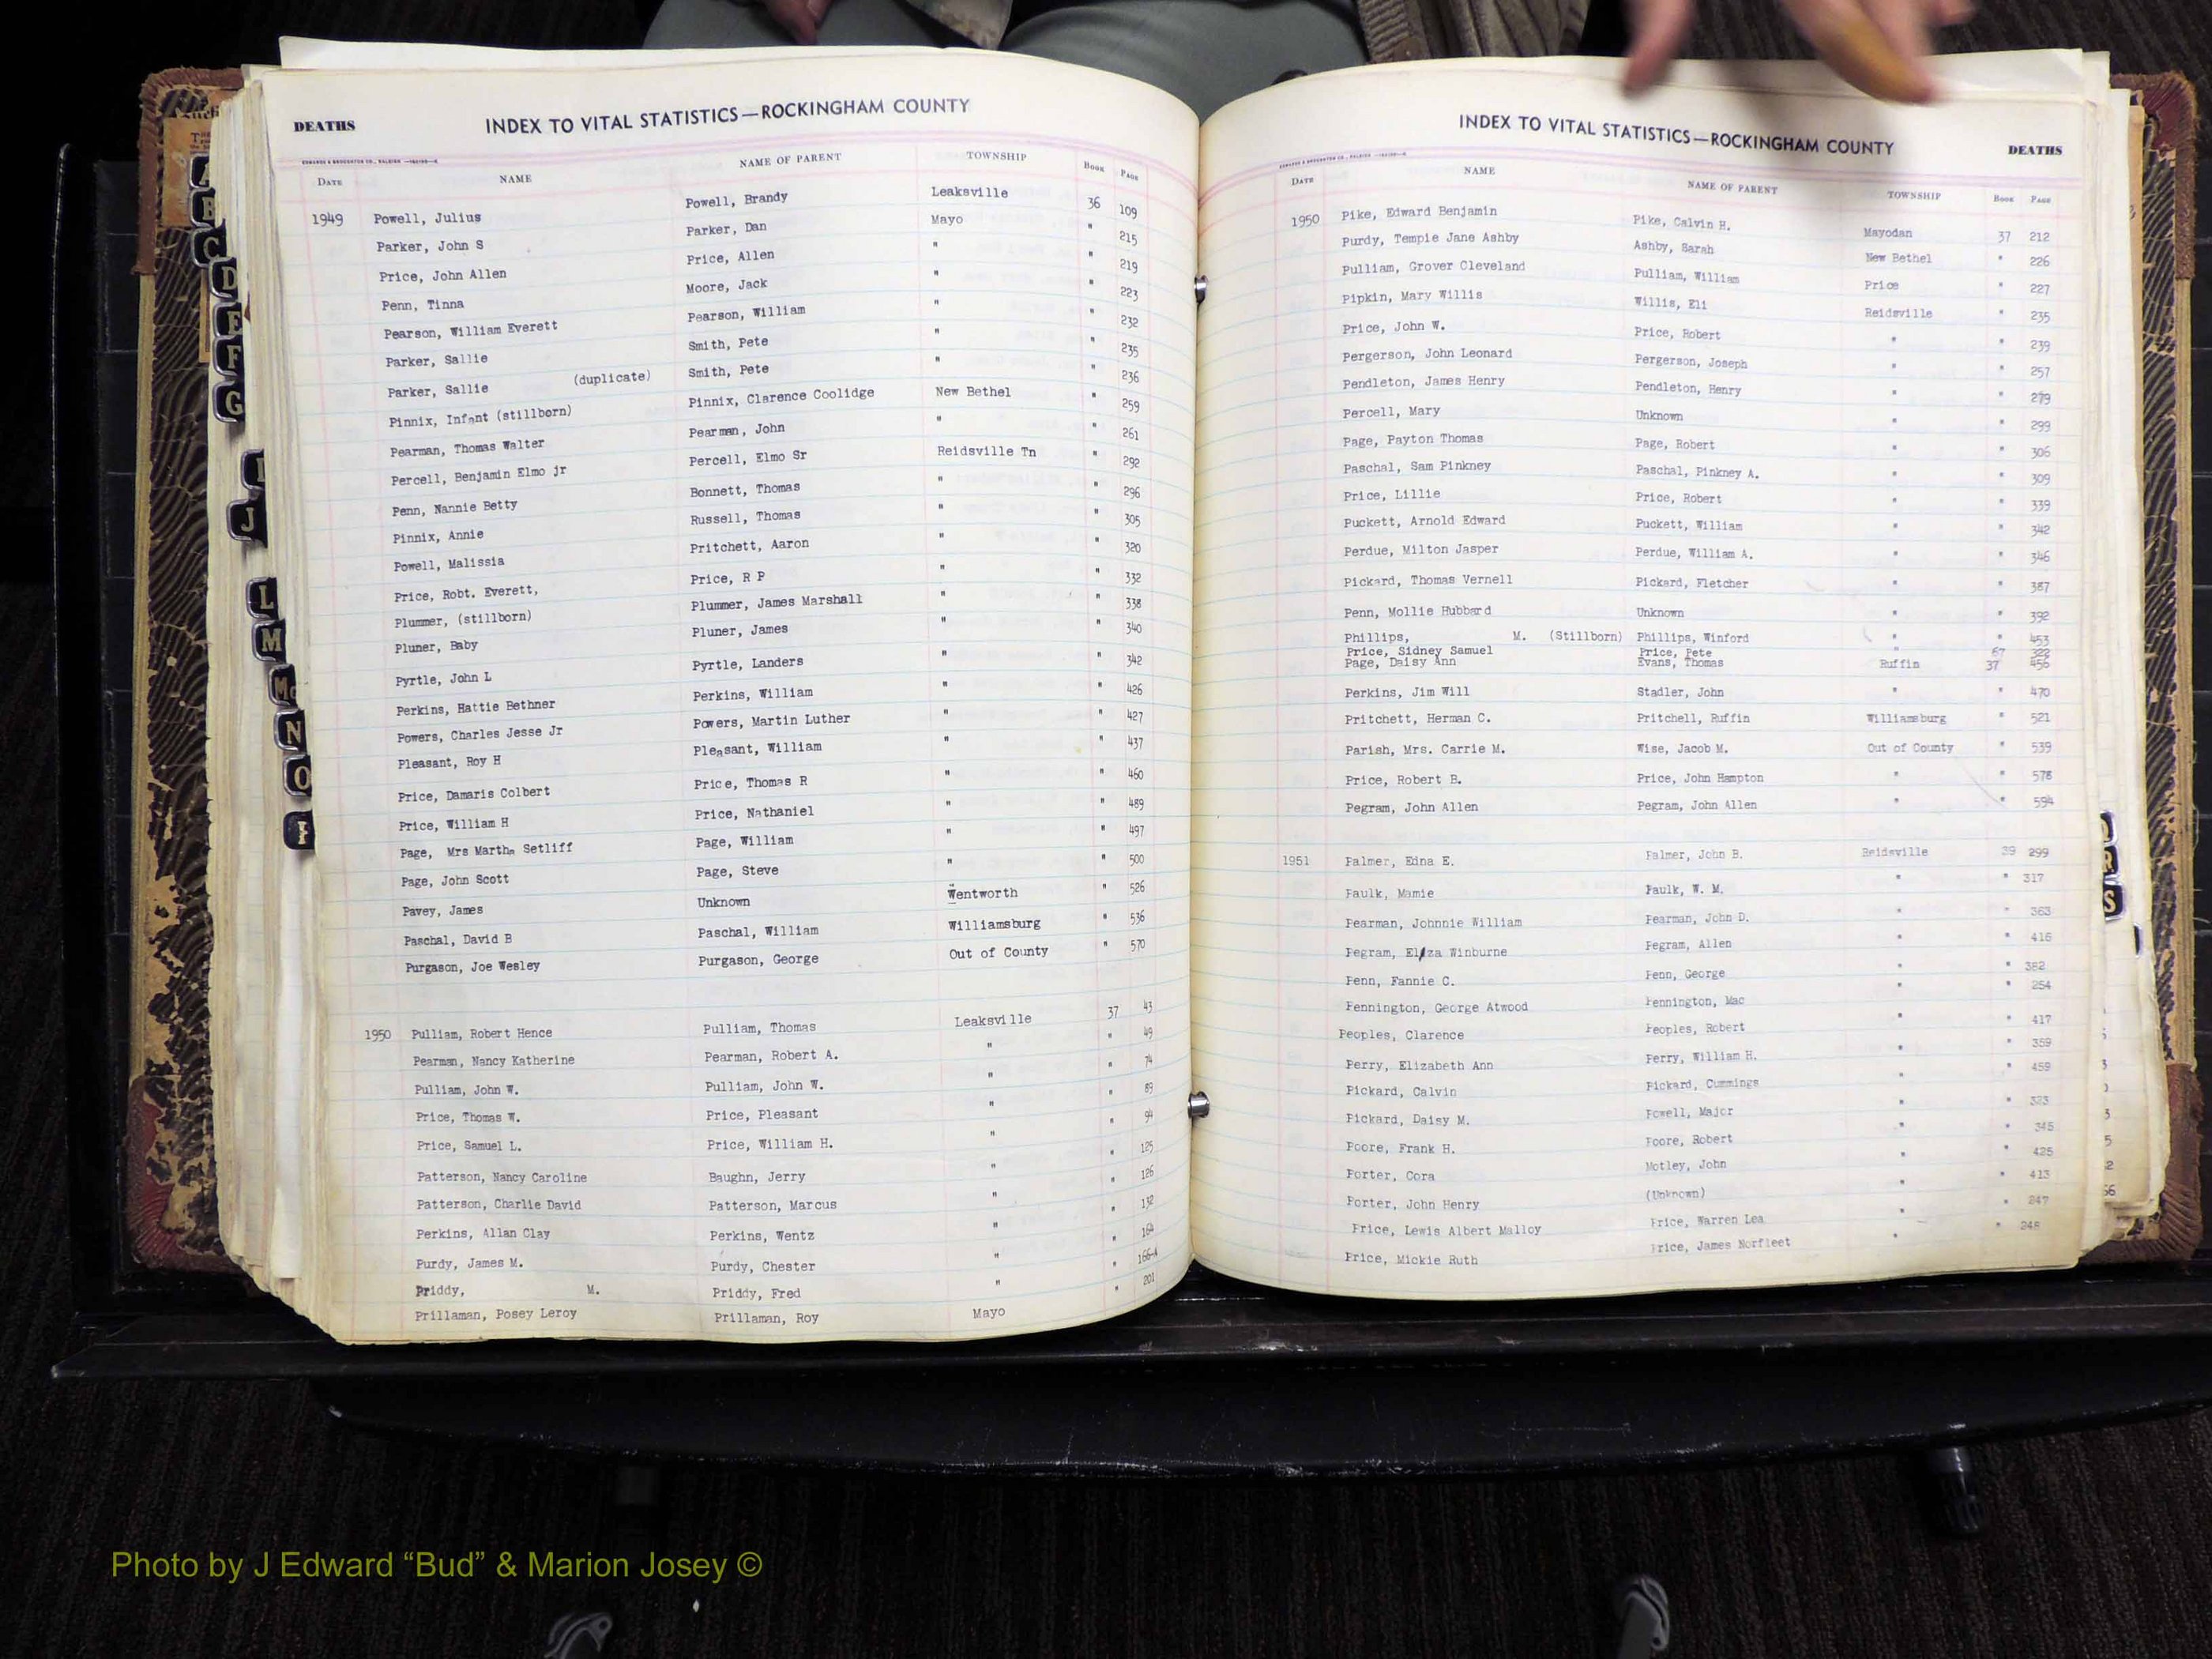 DEATHS INDEX TO VITAL STATISTICS—ROCKINGHAM COUNTY
DATE NAME NAME OF PARENT TOWNSHIP BOOK PAGE
1949 Powell, Julius Powell, Brandy Leaksville 36 109
Parker, John S Parker, Dan Mayo " 215
Price, John Allen Price, Allen " " 219
Penn, Tinna Moore, Jack " " 223
Pearson, William Everett Pearson, William " " 232
Parker, Sallie Smith, Pete " " 235
Parker, Sallie (duplicate) Smith, Pete " " 236
Pinnix, Infant (stillborn) Pinnix, Clarence Coolidge New Bethel " 259
Pearman, Thomas Walter Pearman, John " " 261
Percell, Benjamin Elmo jr Percell, Elmo Sr Reidsville Tn " 292
Penn, Nannie Betty Bonnett, Thomas " " 296
Pinnix, Annie Russell, Thomas " " 305
Powell, Malissia Pritchett, Aaron " " 320
Price, Robt. Everett, Price, R P " " 332
Plummer, (stillborn) Plummer, James Marshall " " 338
Pluner, Baby Pluner, James " " 340
Pyrtle, John L Pyrtle, Landers " " 342
Perkins, Hattie Bethner Perkins, William " " 426
Powers, Charles Jesse Jr Powers, Martin Luther " " 427
Pleasant, Roy H Pleasant, William " " 437
Price, Damaris Colbert Price, Thomas R " " 460
Price, William H Price, Nathaniel " " 489
Page, Mrs Martha Setliff Page, William " " 497
Page, John Scott Page, Steve " " 500
Pavey, James Unknown Wentworth " 526
Paschal, David B Paschal, William Williamsburg " 536
Purgason, Joe Wesley Purgason, George Out of County " 570
1950 Pulliam, Robert Hence Pulliam, Thomas Leaksville 37 43
Pearman, Nancy Katherine Pearman, Robert A. " " 49
Pulliam, John W. Pulliam, John W. " " 74
Price, Thomas W. Price, Pleasant " " 89
Price, Samuel L. Price, William H. " " 94
Patterson, Nancy Caroline Baughn, Jerry " " 125
Patterson, Charlie David Patterson, Marcus " " 126
Perkins, Allan Clay Perkins, Wentz " " 132
Purdy, James M. Purdy, Chester " " 164
Priddy, M. Priddy, Fred " " 166-A
Prillaman, Posey Leroy Prillaman, Roy Mayo " 201
INDEX TO VITAL STATISTICS—ROCKINGHAM COUNTY DEATHS
DATE NAME NAME OF PARENT TOWNSHIP BOOK PAGE
1950 Pike, Edward Benjamin Pike, Calvin H. Mayodan 37 212
Purdy, Tempie Jane Ashby Ashby, Sarah New Bethel " 226
Pulliam, Grover Cleveland Pulliam, William Price " 227
Pipkin, Mary Willis Willis, Eli Reidsville " 235
Price, John W. Price, Robert " " 239
Pergerson, John Leonard Pergerson, Joseph " " 257
Pendleton, James Henry Pendleton, Henry " " 279
Percell, Mary Unknown " " 299
Page, Payton Thomas Page, Robert " " 306
Paschal, Sam Pinkney Paschal, Pinkney A. " " 309
Price, Lillie Price, Robert " " 339
Puckett, Arnold Edward Puckett, William " " 342
Perdue, Milton Jasper Perdue, William A. " " 346
Pickard, Thomas Vernell Pickard, Fletcher " " 387
Penn, Mollie Hubbard Unknown " " 392
Phillips, M. (Stillborn) Phillips, Winford " " 453
Price, Sidney Samuel Price, Pete " 67 322
Page, Daisy Ann Evans, Thomas Ruffin 37 456
Perkins, Jim Will Stadler, John " " 470
Pritchett, Herman C. Pritchell, Ruffin Williamsburg " 521
Parish, Mrs. Carrie M. Wise, Jacob M. Out of County " 539
Price, Robert B. Price, John Hampton " " 578
Pegram, John Allen Pegram, John Allen " " 594
1951 Palmer, Edna E. Palmer, John B. Reidsville 39 299
Paulk, Mamie Paulk, W. M. " " 317
Pearman, Johnnie William Pearman, John D. " " 363
Pegram, Eliza Winburne Pegram, Allen " " 416
Penn, Fannie C. Penn, George " " 382
Pennington, George Atwood Pennington, Mac " " 254
Peoples, Clarence Peoples, Robert " " 417
Perry, Elizabeth Ann Perry, William H. " " 359
Pickard, Calvin Pickard, Cummings " " 459
Pickard, Daisy M. Powell, Major " " 323
Poore, Frank H. Poore, Robert " " 345
Porter, Cora Motley, John " " 425
Porter, John Henry (Unknown) " " 413
Price, Lewis Albert Malloy Price, Warren Lea " " 247
Price, Mickie Ruth Price, James Norfleet " " 248
A
B
C
D
E
F
G
I
J
L
M
Mc
N
O
P
R
S
Photo by J Edward “Bud” & Marion Josey ©